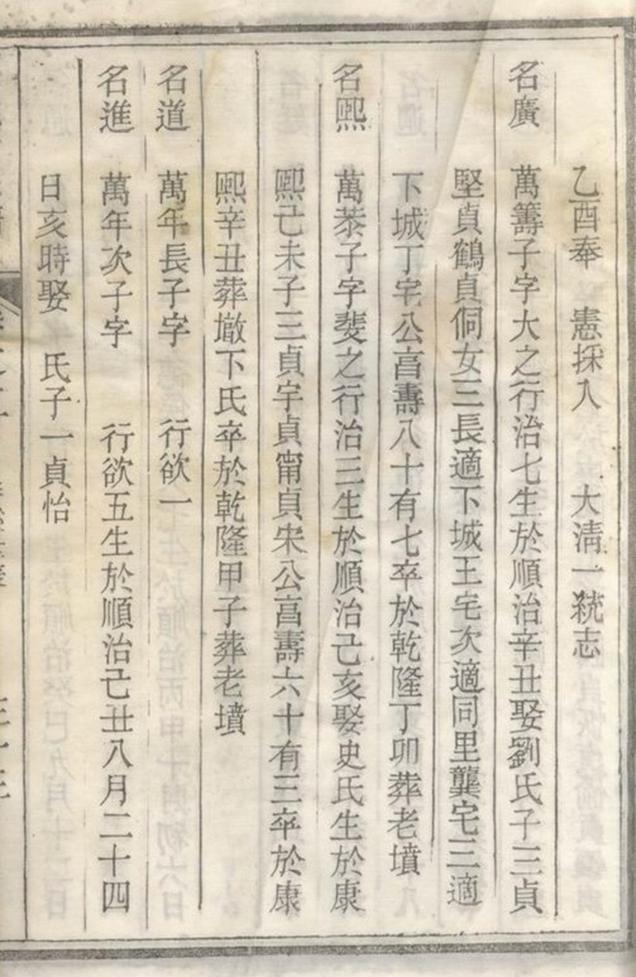 乙酉奉　憲採入　大清一統志
名廣　萬籌子字大之行治七生於順治辛丑娶劉氏子三貞
堅貞鶴貞侗女三長適下城王宅次適同里龔宅三適
下城丁宅公享壽八十有七卒於乾隆丁卯葬老墳
名熈　萬恭子字斐之行治三生於順治己亥娶史氏生於康
熈己未子三貞宇貞甯貞宋公享壽六十有三卒於康
熈辛丑葬墩下氏卒於乾隆甲子葬老墳
名道　萬年長子字　行欲一
名進　萬年次子字　行欲五生於順治己丑八月二十四
日亥時娶　氏子一貞怡